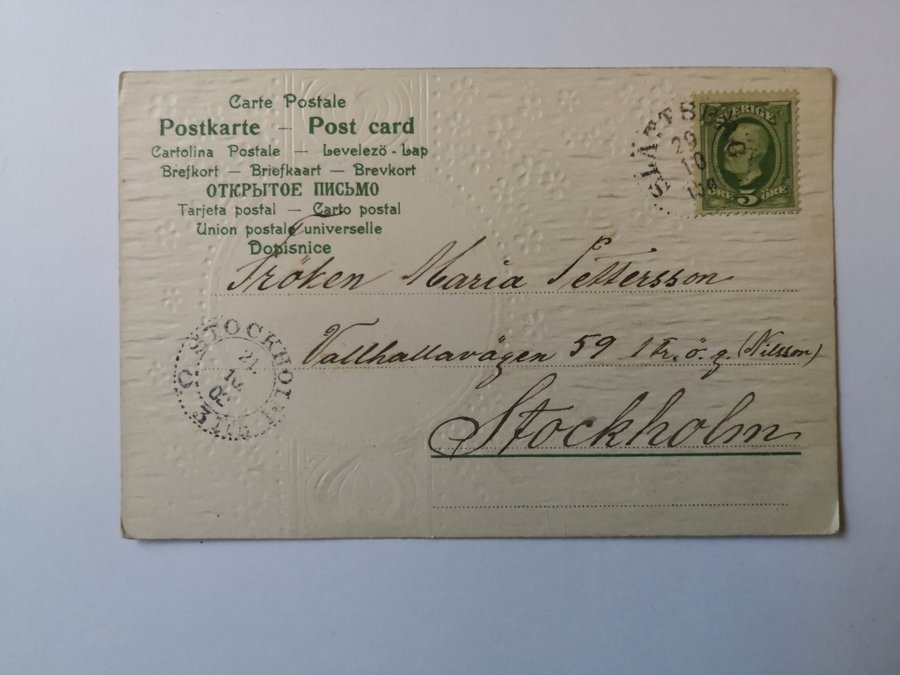 Carte Postale
Postkarte — Post card
Cartolina Postale — Levelező-Lap
Brefkort — Briefkaart — Brevkort
ОТКРЫТОЕ ПИСЬМО
Tarjeta postal — Carto postal
Union postale universelle
Dopisnice
SVERIGE
5
ÖRE ÖRE
29
10
Fröken Maria Pettersson
Vallhallavägen 59 1 tr. ö. g. (Nilsson)
Stockholm
STOCKHOLM